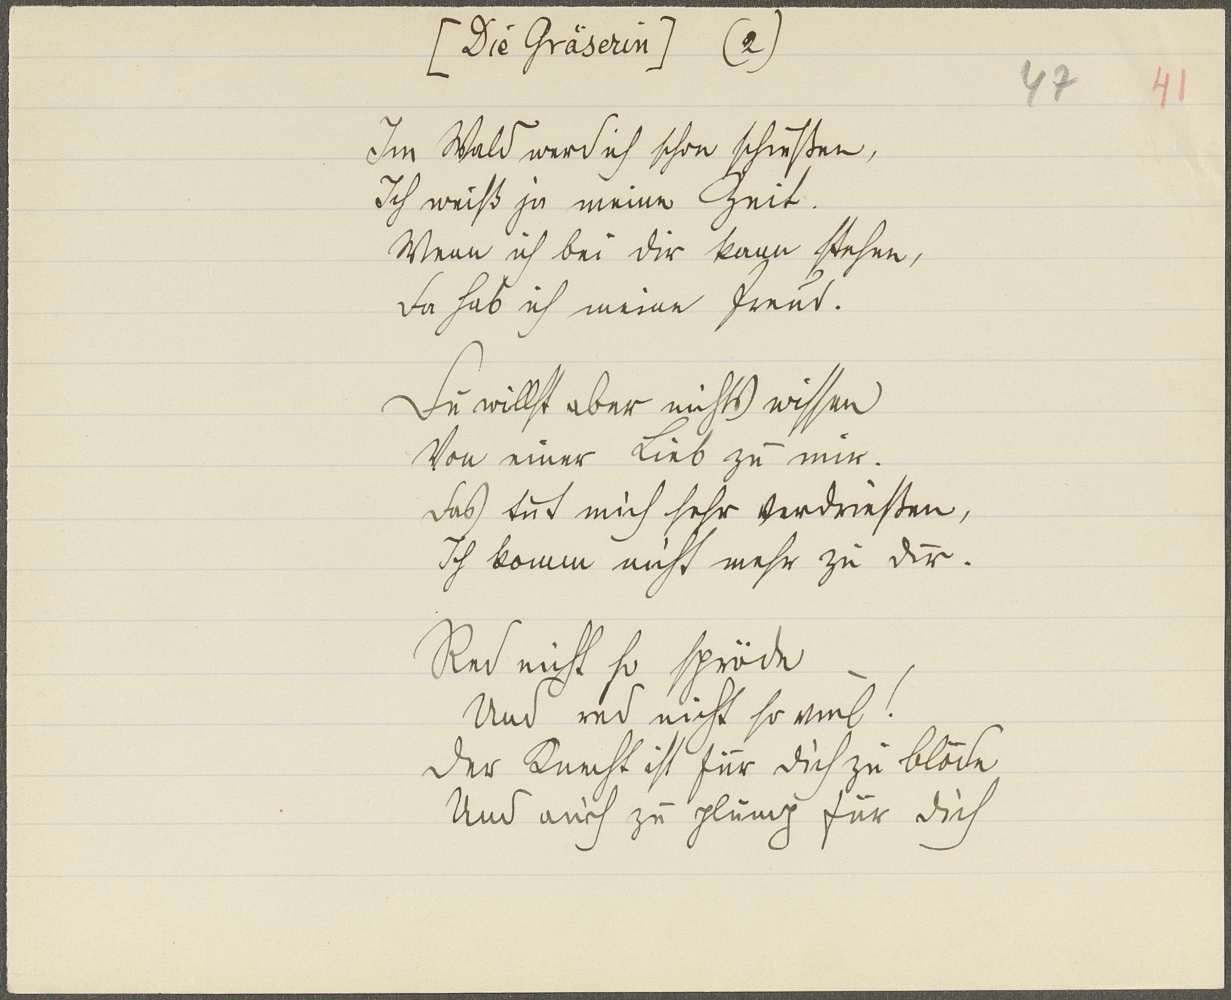 [Die Gräserin] (2)
47 41
Im Wald werd ich schon schießen,
Ich weiß ja meine Zeit.
Wenn ich bei dir kann stehen,
Da hab ich meine Freud.
Du willst aber nichts wissen
Von einer Lieb zu mir.
Das tut mich sehr verdrießen,
Ich komm nicht mehr zu dir.
Red nicht so spröde
Und red nicht so viel!
Der Knecht ist für dich zu blöde
Und auch zu plump für dich